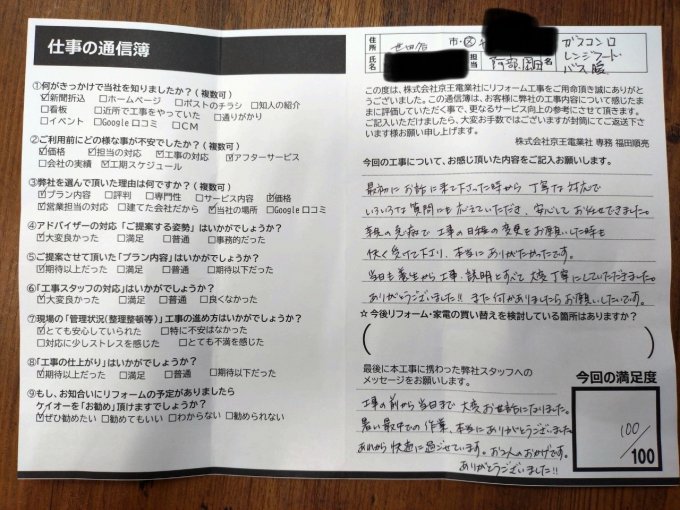 仕事の通信簿
①何がきっかけで当社を知りましたか？(複数可)
☑新聞折込 □ホームページ □ポストのチラシ □知人の紹介
□看板 □近所で工事をやっていた □通りがかり
□イベント □Google口コミ □CM
②ご利用前にどの様な事が不安でしたか？(複数可)
☑価格 ☑担当の対応 ☑工事の対応 ☑アフターサービス
□会社の実績 ☑工期スケジュール
③弊社を選んで頂いた理由は何ですか？(複数可)
☑プラン内容 □評判 □専門性 □サービス内容 ☑価格
☑営業担当の対応 □建てた会社だから ☑当社の場所 □Google口コミ
④アドバイザーの対応「ご提案する姿勢」はいかがでしょうか？
☑大変良かった □満足 □普通 □事務的だった
⑤ご提案させて頂いた「プラン内容」はいかがでしょうか？
☑期待以上だった □満足 □普通 □期待以下だった
⑥「工事スタッフの対応」はいかがでしょうか？
☑大変良かった □満足 □普通 □良くなかった
⑦現場の「管理状況(整理整頓等)」工事の進め方はいかがでしょうか？
☑とても安心していられた □特に不安はなかった
□対応に少しストレスを感じた □とても不満を感じた
⑧「工事の仕上がり」はいかがでしょうか？
☑期待以上だった □満足 □普通 □期待以下だった
⑨もし、お知合いにリフォームの予定がありましたら
ケイオーを「お勧め」頂けますでしょうか？
☑ぜひ勧めたい □勧めてもいい □わからない □勧められない
住所 世田谷 市・区
氏名 担当 阿部 名
ガスコンロ
レンジフード
バス
この度は、株式会社京王電業社にリフォーム工事をご用命頂き誠にありがと
うございました。この通信簿は、お客様に弊社の工事内容について感じたま
まに評価していただく事で、更なるサービス向上の参考にさせて頂きます。
ご記入いただけましたら、大変お手数ではございますが封筒にてご返送下さ
います様お願い申し上げます。
株式会社京王電業社 専務 福田順亮
今回の工事について、お感じ頂いた内容をご記入お願いします。
最初にお話に来て下さった時から丁寧な対応で
いろいろな質問にも応えていただき、安心してお任せできました。
家族の急病で工事の日程の変更をお願いした時も
快く受けて下さり、本当にありがたかったです。
当日も養生から工事、説明とすべて大変丁寧にしていただきました。
ありがとうございました!! また何かありましたらお願いしたいです。
☆今後リフォーム・家電の買い替えを検討している箇所はありますか？
最後に本工事に携わった弊社スタッフへの
メッセージをお願いします。
工事の前から当日まで大変お世話になりました。
暑い最中での作業、本当にありがとうございました。
あれから快適に過ごせています。お2人のおかげです。
ありがとうございました!!
今回の満足度
100/100